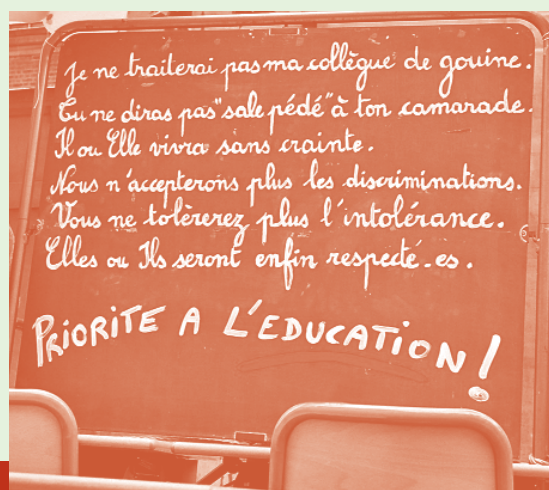 Je ne traiterai pas ma collègue de gouine.
Tu ne diras pas "sale pédé" à ton camarade.
Il ou Elle vivra sans crainte.
Nous n'accepterons plus les discriminations.
Vous ne tolèrerez plus l'intolérance.
Elles ou Ils seront enfin respecté-es.
PRIORITE A L'EDUCATION!